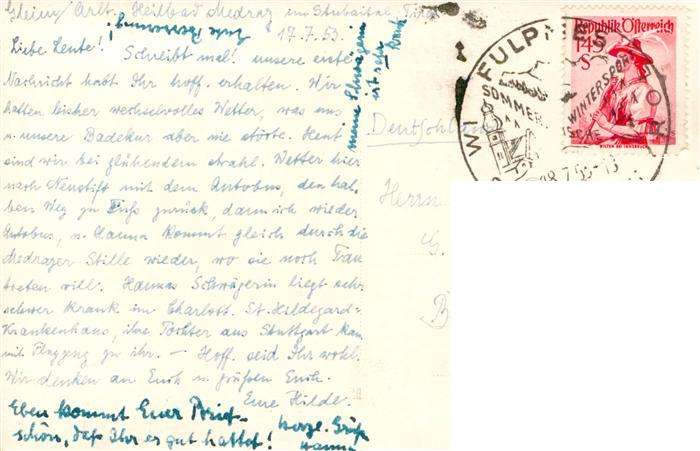 Heilbad Medraz im Stubaital, Tirol
17.7.53.
Liebe Leute! Schreibt mal! unsere erste
Nachricht habt Ihr hoff. erhalten. Wir
hatten bisher wechselvolles Wetter, was uns
u. unsere Badekur aber nie störte. Heut
sind wir bei glühendem strahl. Wetter hier
nach Neustift mit dem Autobus, den hal-
ben Weg zu Fuß zurück, dann ich wieder
Autobus, u. Hanna kommt gleich durch die
Medrazer Stille wieder, wo sie noch
treten will. Hannas Schwägerin liegt sehr
schwer krank im Charlott. St. Hildegard-
Krankenhaus, ihre Töchter aus Stuttgart kam
mit Flugzeug zu ihr. — Hoff. seid Ihr wohl.
Wir denken an Euch u. grüßen Euch.
Eure Hilde.
Eben kommt Euer Brief
schön, daß Ihr es gut hattet!
herzl. Grüße
Hanna
meine Schwägerin
ist sehr krank
Gute Besserung!
Deutschland
Herrn
G.
B
FULPMES
SOMMER
WINTERSPORT
18.7.53-13
Republik Österreich
1.45
S